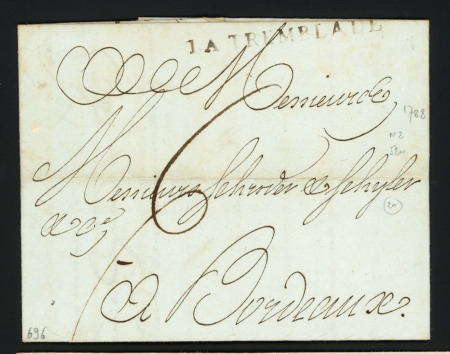 LA TREMBLADE
A Messieurs
1788
N2
Messieurs Schroder & Schyler
20
& Ce
6
à Bordeaux.
696